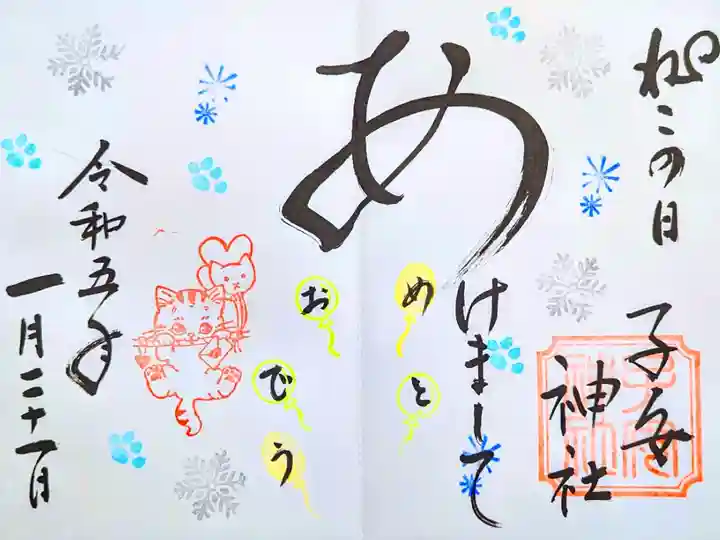 ねこの日
子安
神社
あ
けまして
おめでとう
令和五年
一月二十一日